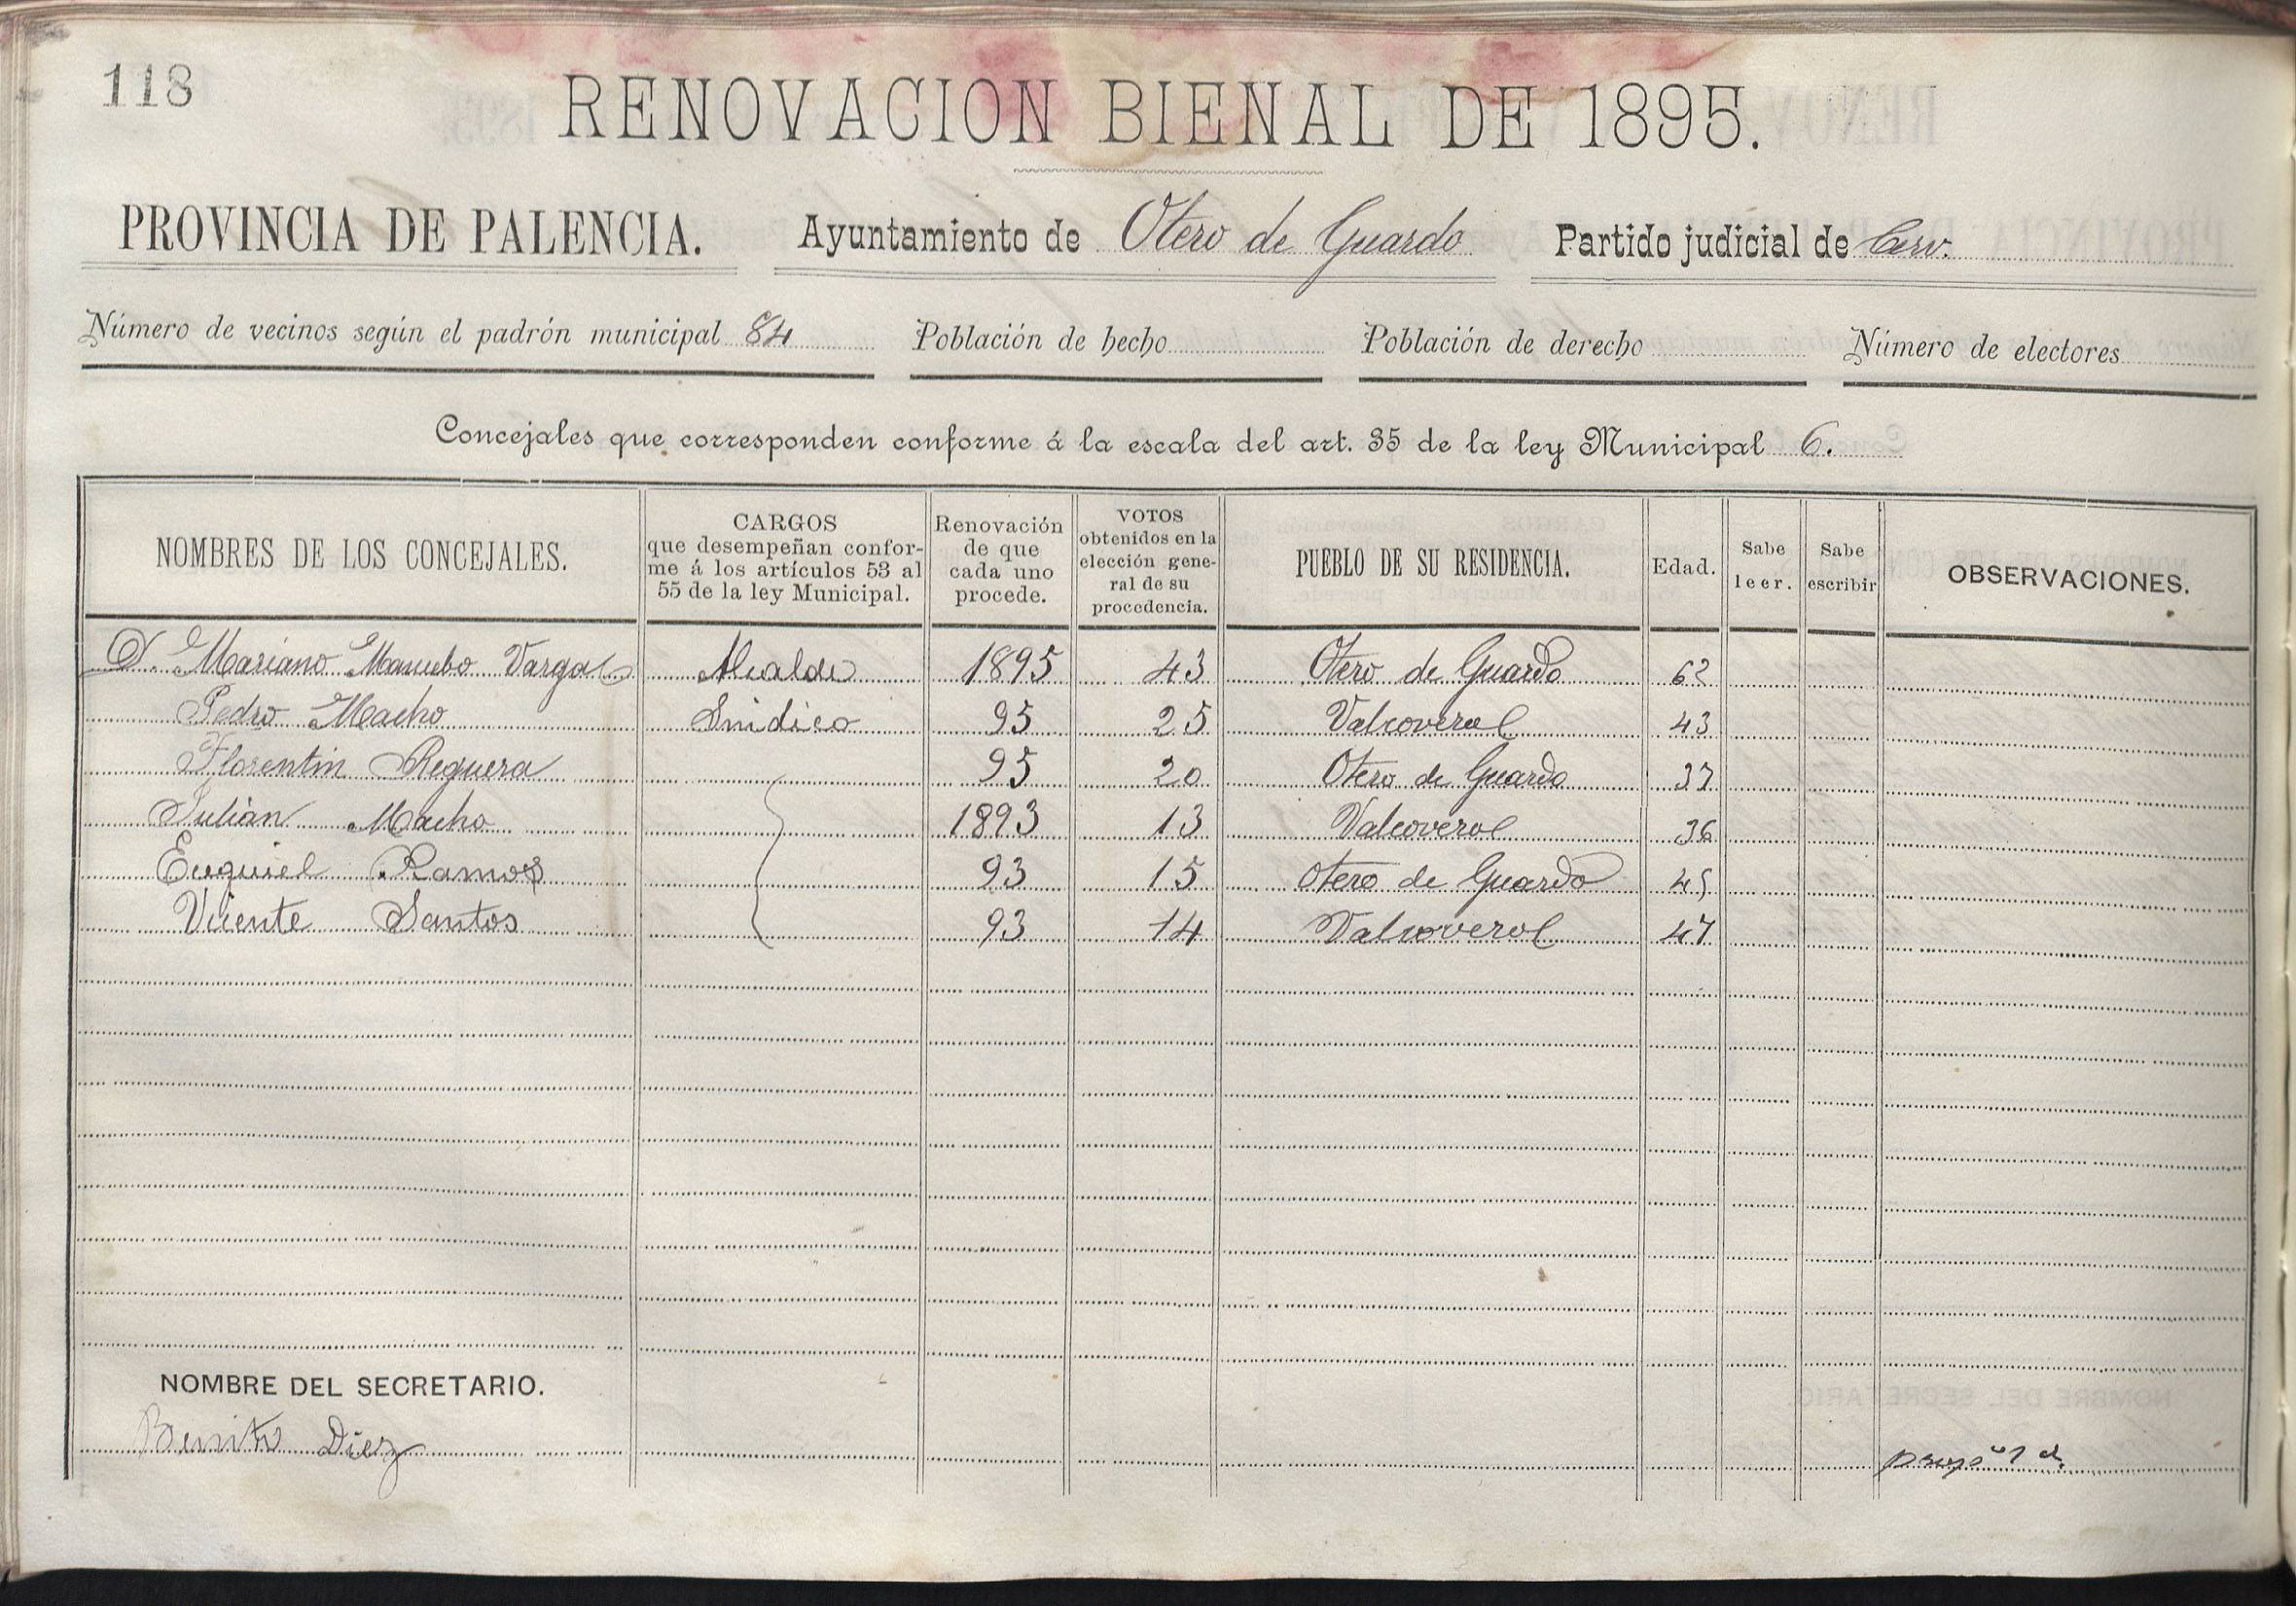 118
RENOVACION BIENAL DE 1895.
PROVINCIA DE PALENCIA. Ayuntamiento de Otero de Guardo Partido judicial de Cerv.
Número de vecinos según el padrón municipal 84 Población de hecho Población de derecho Número de electores
Concejales que corresponden conforme á la escala del art. 35 de la ley Municipal 6.
NOMBRES DE LOS CONCEJALES.
CARGOS
que desempeñan confor-
me á los artículos 53 al
55 de la ley Municipal.
Renovación
de que
cada uno
procede.
VOTOS
obtenidos en la
elección gene-
ral de su
procedencia.
PUEBLO DE SU RESIDENCIA.
Edad.
Sabe
leer.
Sabe
escribir
OBSERVACIONES.
D. Mariano Mancebo Vargas Alcalde 1895 43 Otero de Guardo 62
Pedro Macho Sindico 95 25 Valcoverol 43
Florentin Reguera 95 20 Otero de Guardo 37
Julián Macho 1893 13 Valcoverol 36
Ecequiel Ramos 93 15 Otero de Guardo 45
Vicente Santos 93 14 Valcoverol 47
NOMBRE DEL SECRETARIO.
Benito Diez